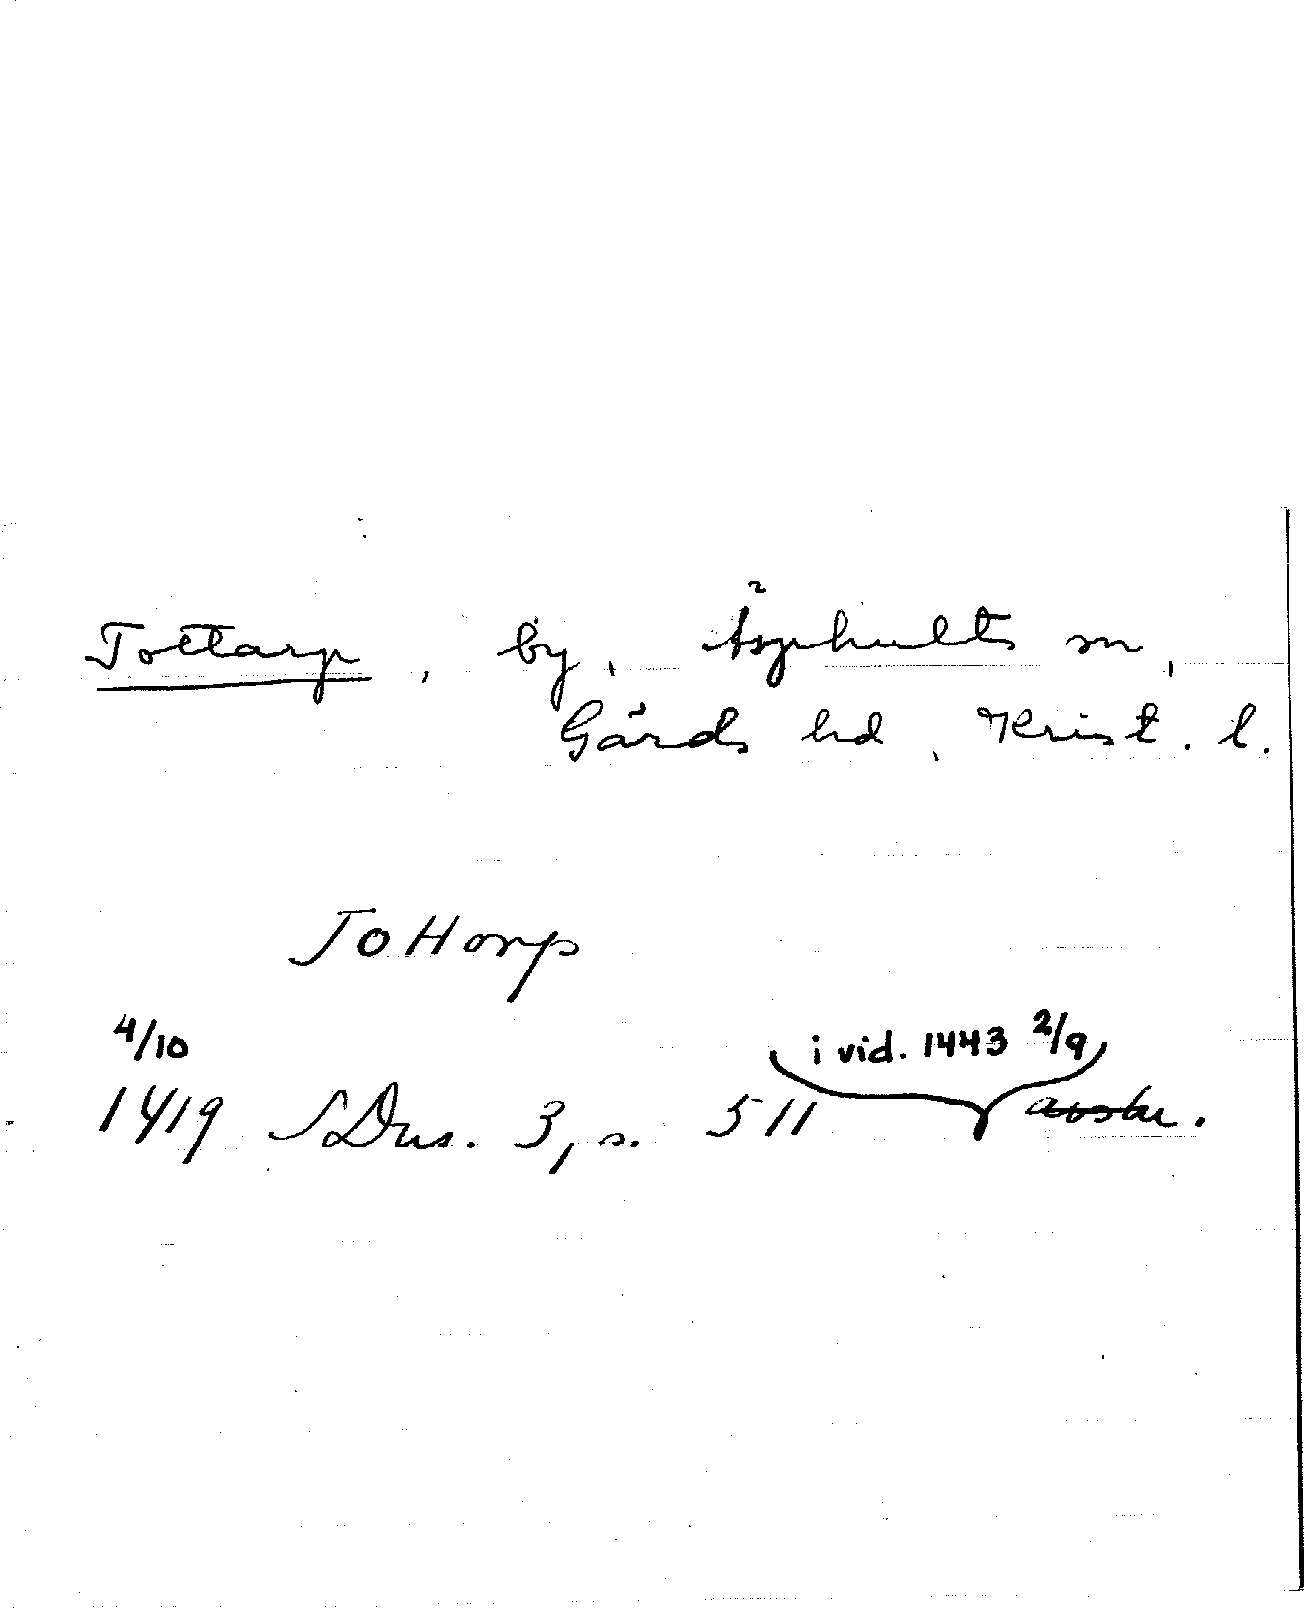 Tottarp, by, Äsphults sn,
Gärds hd, Krist. l.
Tottorp
4/10 i vid. 1443 2/9
1419 SDns. 3, s. 511 avskr.